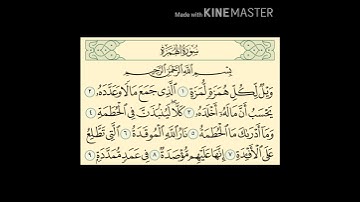 Made with KINEMASTER
سُورَةُ الْهُمَزَةِ
بِسْمِ اللَّهِ الرَّحْمَٰنِ الرَّحِيمِ
وَيْلٌ لِّكُلِّ هُمَزَةٍ لُّمَزَةٍ ١ الَّذِي جَمَعَ مَالًا وَعَدَّدَهُ ٢
يَحْسَبُ أَنَّ مَالَهُ أَخْلَدَهُ ٣ كَلَّا لَيُنبَذَنَّ فِي الْحُطَمَةِ ٤
وَمَا أَدْرَاكَ مَا الْحُطَمَةُ ٥ نَارُ اللَّهِ الْمُوقَدَةُ ٦ الَّتِي تَطَّلِعُ
عَلَى الْأَفْئِدَةِ ٧ إِنَّهَا عَلَيْهِم مُّؤْصَدَةٌ ٨ فِي عَمَدٍ مُّمَدَّدَةٍ ٩